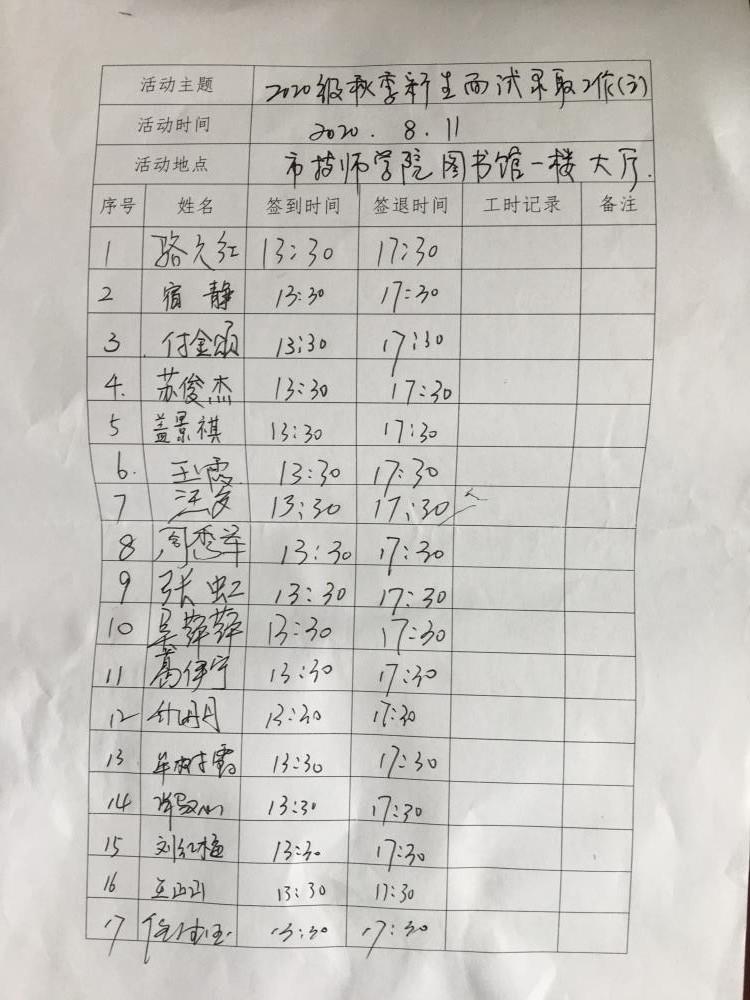 活动主题 2020级秋季新生面试录取工作(六)
活动时间 2020.8.11
活动地点 市技师学院图书馆一楼大厅.
序号 姓名 签到时间 签退时间 工时记录 备注
1 骆久红 13:30 17:30
2 宿静 13:30 17:30
3 付金颂 13:30 17:30
4. 苏俊杰 13:30 17:30
5 盖景祺 13:30 17:30
6. 王霞 13:30 17:30
7 13:30 17:30
8 周秀萍 13:30 17:30
9 张虹 13:30 17:30
10 吴萍萍 13:30 17:30
11 葛伊宁 13:30 17:30
12 付明月 13:30 17:30
13 牟树霞 13:30 17:30
14 13:30 17:30
15 刘红梅 13:30 17:30
16 13:30 17:30
17 13:30 17:30